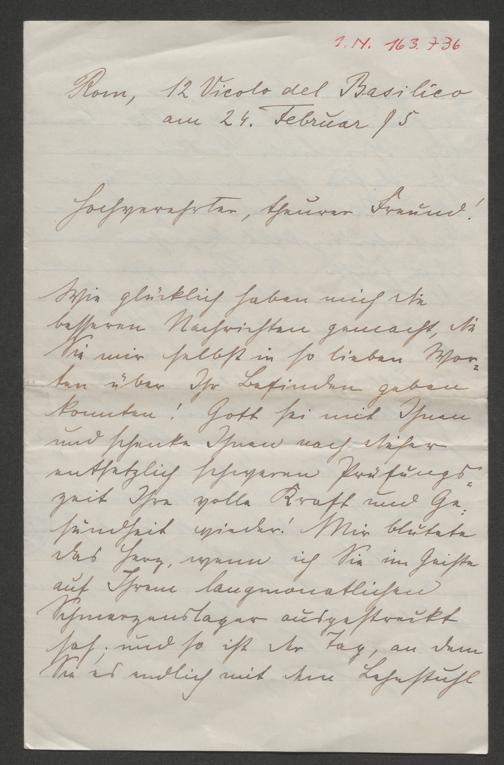 I. N. 163.736
Rom, 12 Vicolo del Basilico
am 24. Februar 95
Hochverehrter, theurer Freund!
Wie glücklich haben mich die
besseren Nachrichten gemacht, die
Sie mir selbst in so lieben Wor-
ten über Ihr Befinden geben
konnten! Gott sei mit Ihnen
und schenke Ihnen nach dieser
entsetzlich schweren Prüfungs-
zeit Ihre volle Kraft und Ge-
sundheit wieder! Mir blutete
das Herz, wenn ich Sie im Geiste
auf Ihrem langmonatlichen
Schmerzenslager ausgestreckt
sah; und so ist der Tag, an dem
Sie es endlich mit dem Lehnstuhl